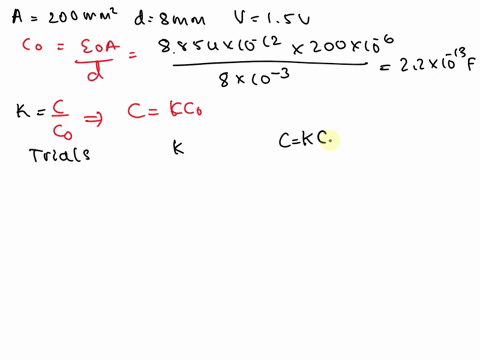 A = 200mm² d=8mm V=1.5V
C0 = ε0A/d = 8.854×10^-12 × 200×10^-6 / 8×10^-3 = 2.2×10^-13 F
K = C/C0 ⇒ C = KC0
Trials K C=KC.